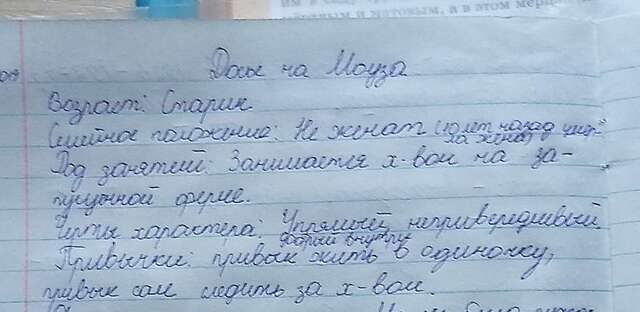 им в
ливым и матовым, а в этом мер
Досье на Моуза
Возраст: Старик
Семейное положение: Не женат (10 лет назад умер-
ла жена)
Род занятий: Занимается х-вом на за-
пущенной ферме.
Черты характера: Упрямый, непривередливый
добрый внутри
Привычки: привык жить в одиночку,
привык сам следить за х-вом.